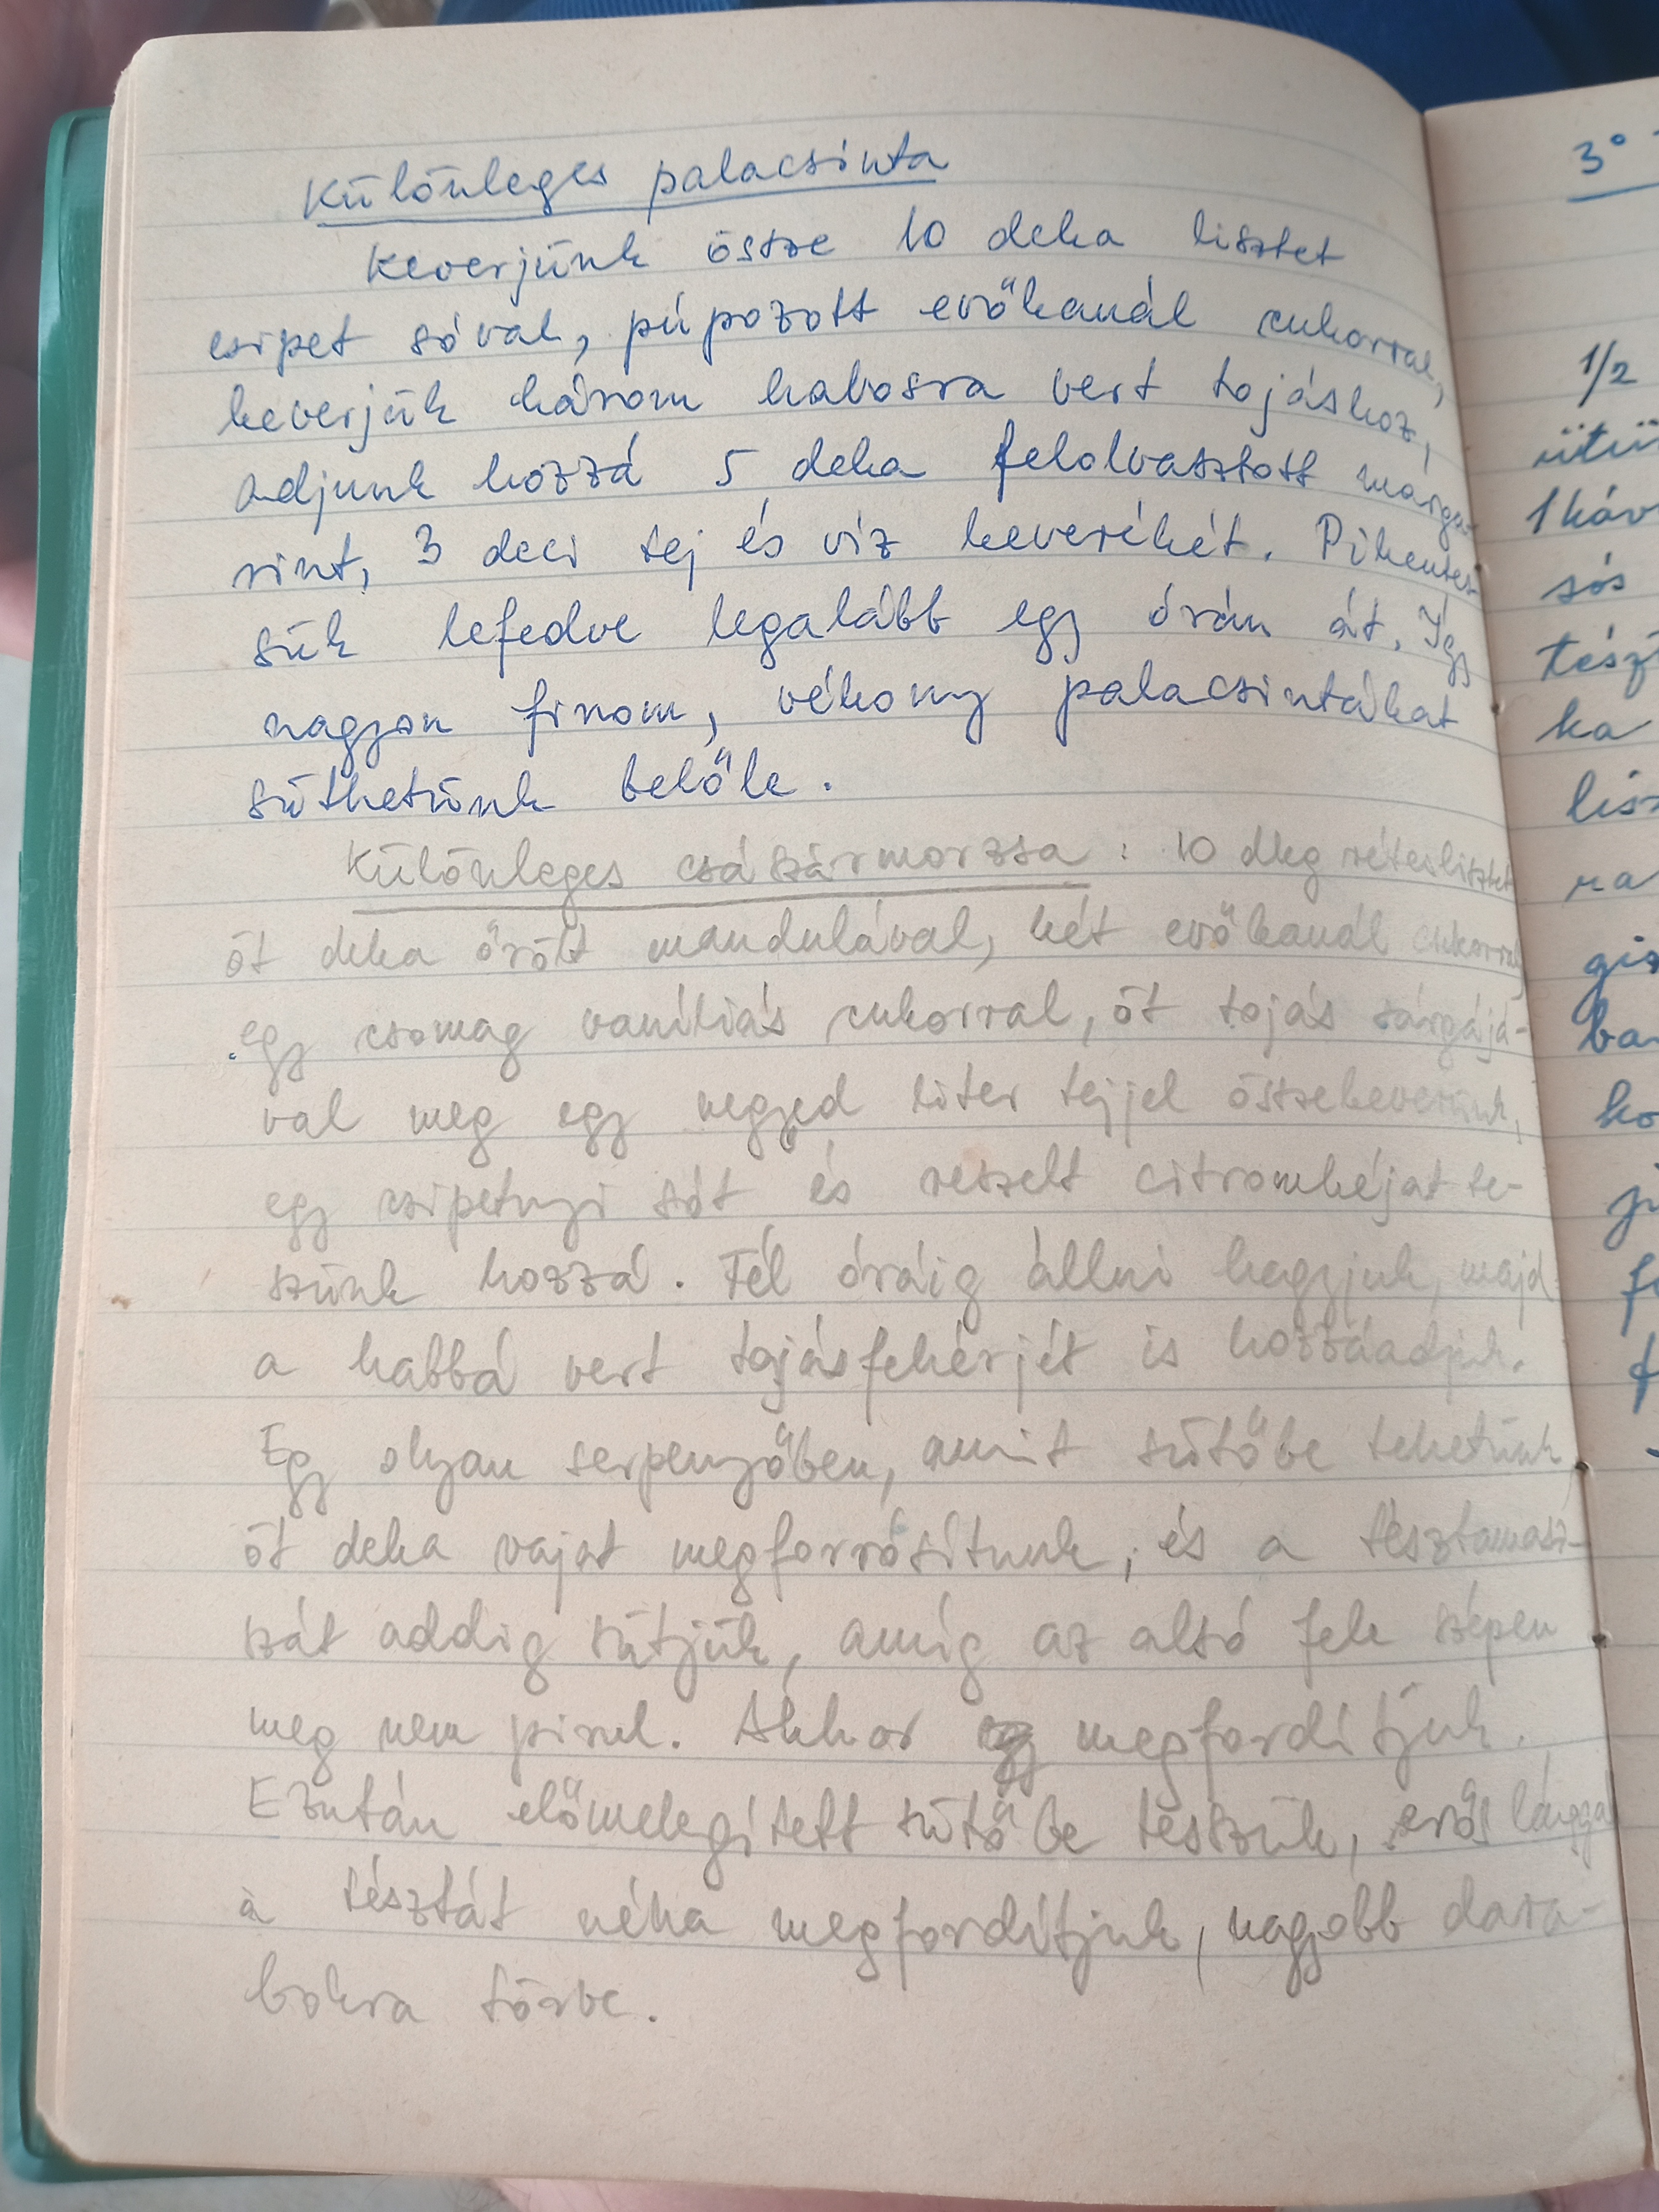 Különleges palacsinta
Keverjünk össze 10 deka lisztet
csipet sóval, púpozott evőkanál cukorral,
keverjük három habosra vert tojáshoz,
adjunk hozzá 5 deka felolvasztott marga-
rint, 3 deci tej és víz keverékét. Pihentes-
sük lefedve legalább egy órán át. Így
nagyon finom, vékony palacsintákat
süthetünk belőle.
Különleges császármorzsa: 10 dkg réteslisztet
öt deka őrölt mandulával, két evőkanál cukorral,
egy csomag vaníliás cukorral, öt tojás sárgájá-
val meg egy negyed liter tejjel összekeverünk,
egy csipetnyi sót és reszelt citromhéjat te-
szünk hozzá. Fél óráig állni hagyjuk, majd
a habbá vert tojásfehérjét is hozzáadjuk.
Egy olyan serpenyőben, amit sütőbe tehetünk,
öt deka vajat megforrósítunk, és a tésztamasz-
szát addig sütjük, amíg az alsó fele szépen
meg nem pirul. Akkor megfordítjuk.
Ezután előmelegített sütőbe tesszük, erős lánggal
a tésztát néha megfordítjuk, nagyobb dara-
bokra törve.
3°
1/2
ütü
1 káv
sós
tészt
ka
lisz
ra
gis
ba
ko